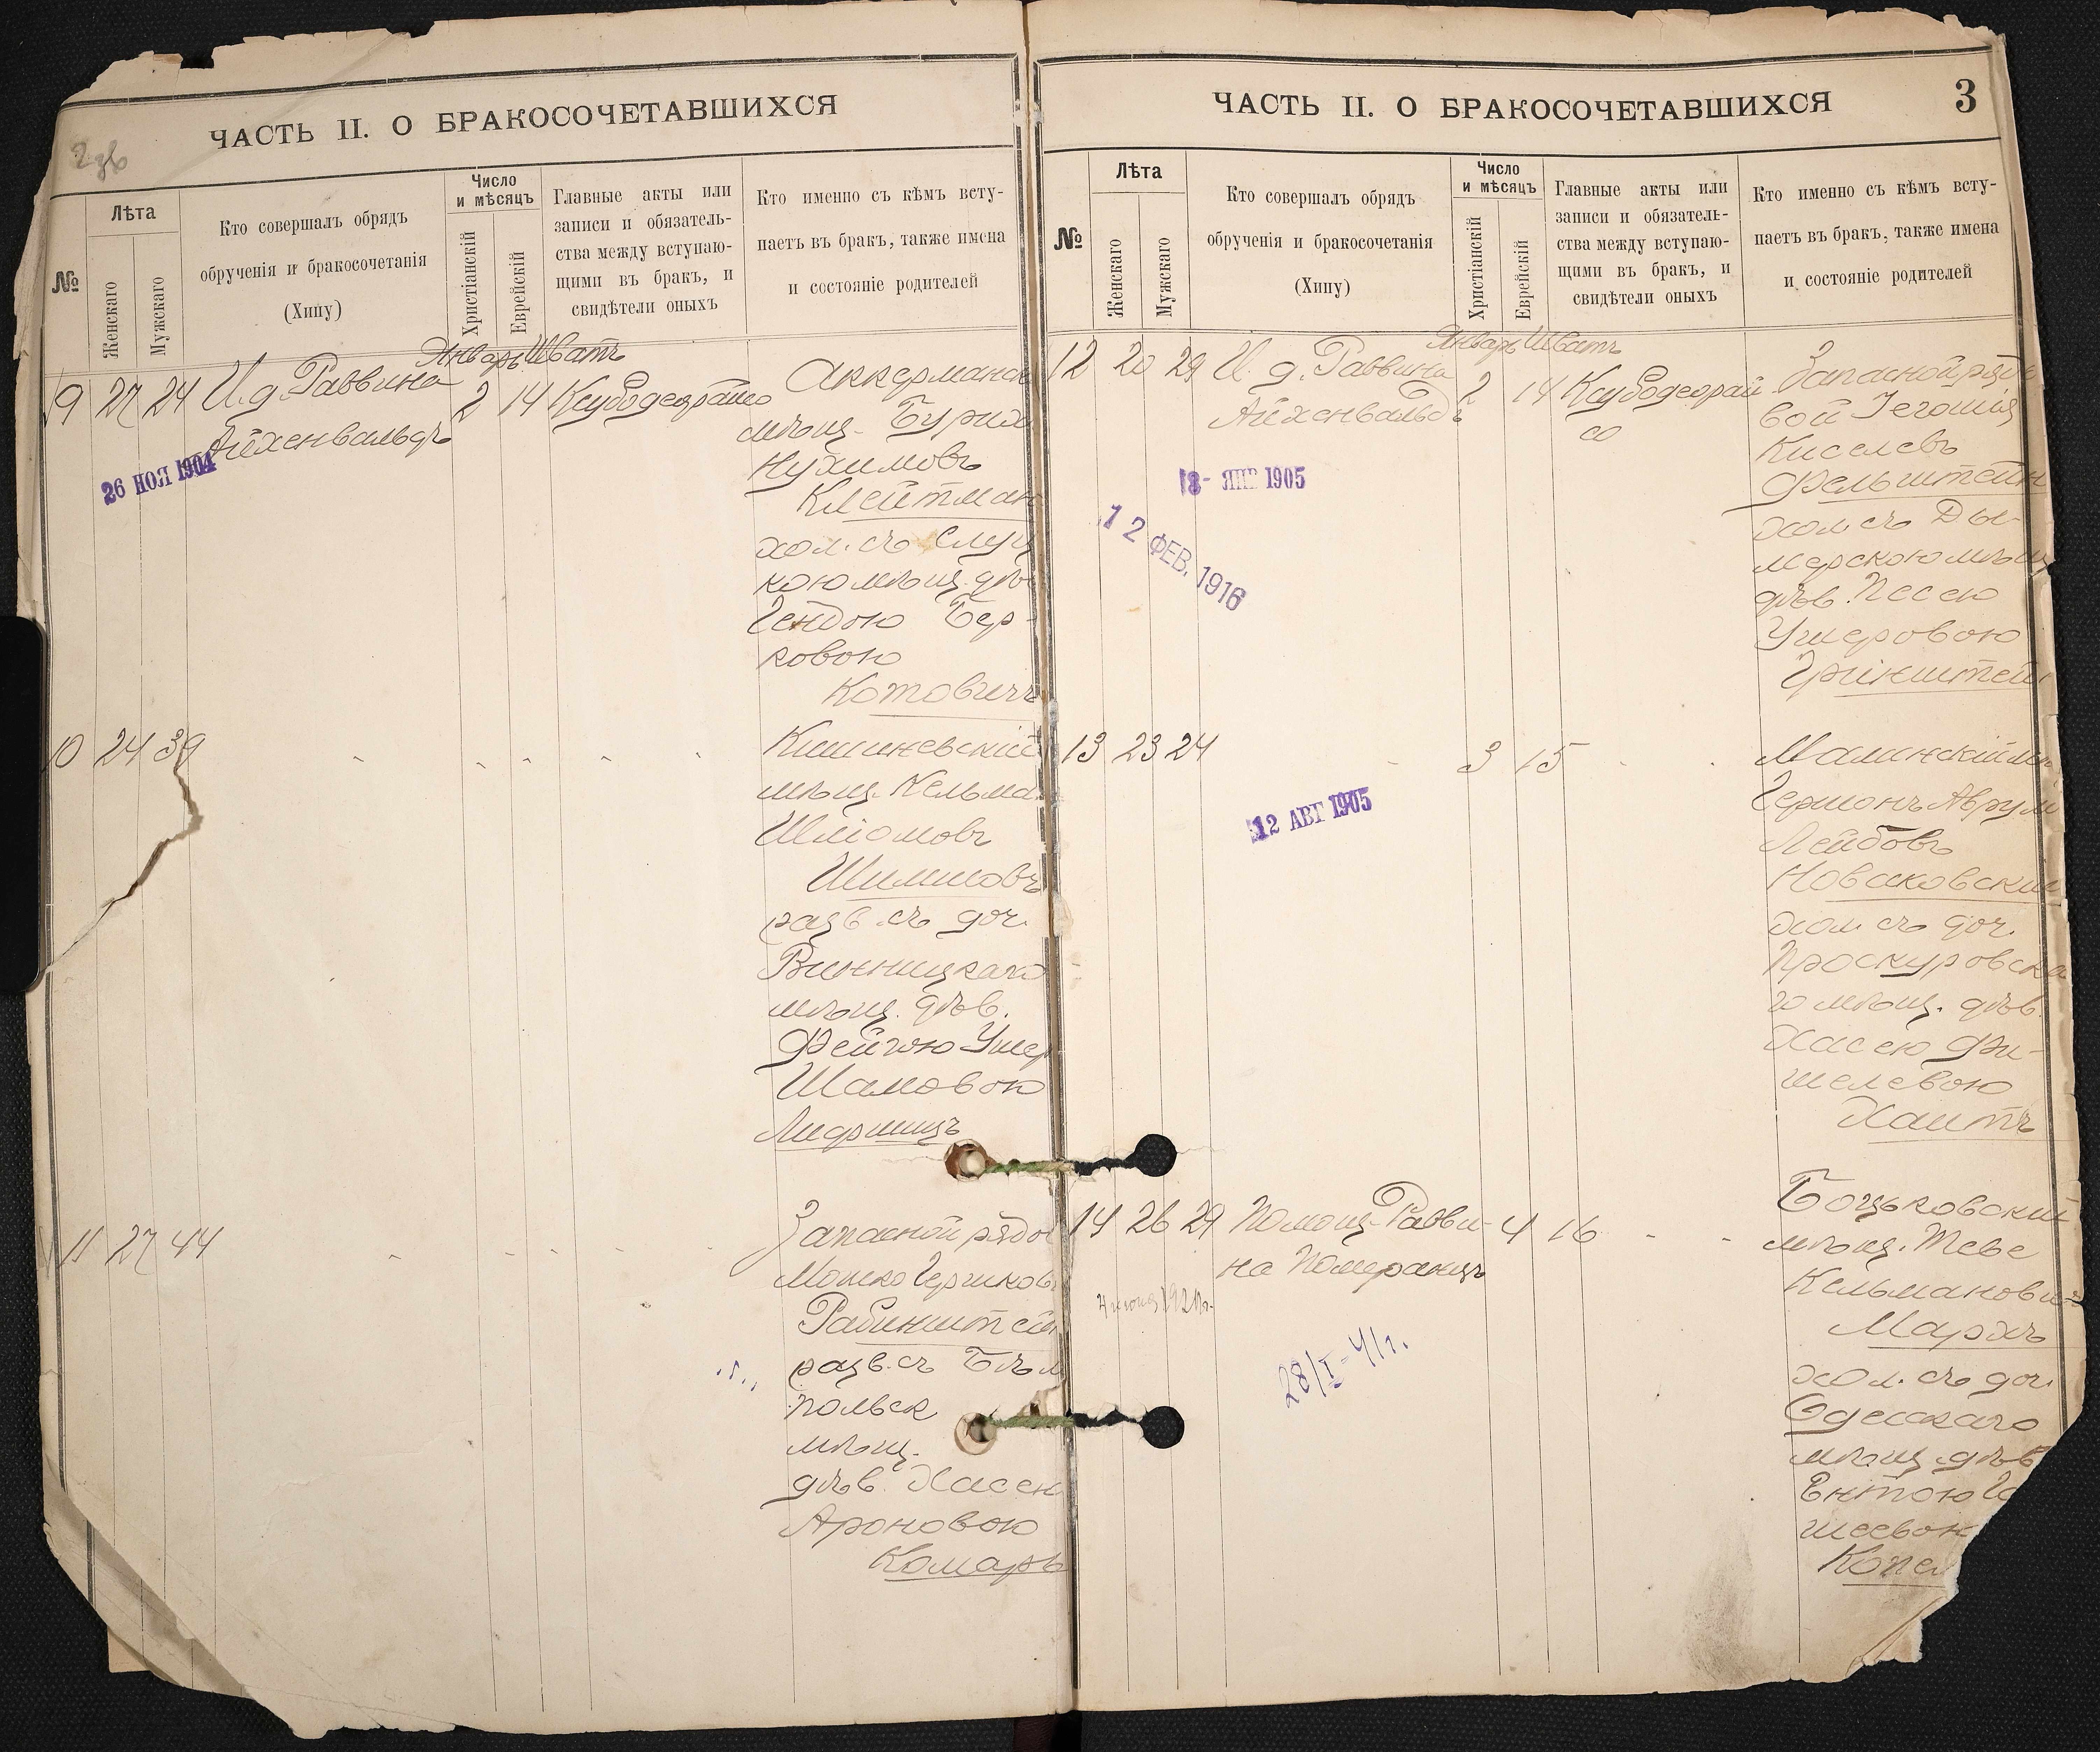 ЧАСТЬ II. О БРАКОСОЧЕТАВШИХСЯ
№
Лѣта
Женскаго
Мужскаго
Кто совершалъ обрядъ
обрученія и бракосочетанія
(Хипу)
Число
и мѣсяцъ
Христіанскій
Еврейскій
Главные акты или
записи и обязатель-
ства между вступаю-
щими въ бракъ, и
свидѣтели оныхъ
Кто именно съ кѣмъ всту-
паетъ въ бракъ, также имена
и состояніе родителей
Январь Шватъ
9 27 24 И. д. Раввина
Айхенвальдъ
2 14
26 НОЯ 1904
Аккерманск
мѣщ. Бурих
Нухимовъ
Клейтман
хол. съ Слуц
кою мѣщ. дѣв
Гендою Бер-
ковою
Котовичъ
10 24 39
Кишиневскій
мѣщ. Кельма
Шліомовъ
Шимшовъ
разв. съ доч.
Винницкаго
мѣщ. дѣв.
Фейгою Ушер
Шамовою
Лифшицъ
11 27 44
Запасной рядов
Мошко Гершковъ
Рабинштейн
разв. съ Бѣло
польск
мѣщ.
дѣв. Хасею
Ароновою
Комаръ
ЧАСТЬ II. О БРАКОСОЧЕТАВШИХСЯ
3
№
Лѣта
Женскаго
Мужскаго
Кто совершалъ обрядъ
обрученія и бракосочетанія
(Хипу)
Число
и мѣсяцъ
Христіанскій
Еврейскій
Главные акты или
записи и обязатель-
ства между вступаю-
щими въ бракъ, и
свидѣтели оныхъ
Кто именно съ кѣмъ всту-
паетъ въ бракъ, также имена
и состояніе родителей
Январь Шватъ
12 20 29 И. д. Раввина
Айхенвальдъ
2 14
ЯНВ 1905
12 ФЕВ. 1916
Запасной рядо
вой Іегошія
Киселевъ
Фельштейн
хол. съ Ды-
мерскою мѣщ
дѣв. Песею
Ушеровою
Грінштей
13 23 24
3 15
12 АВГ 1905
Малинскій мѣ
Гершонъ Аврум
Лейбовъ
Новаковскій
хол. съ доч.
Проскуровска
го мѣщ. дѣв.
Хасею Фи-
шелевою
Хаитъ
14 26 29 Помощ. Равви-
на Померанцъ
4 16
28/I-41г.
Боцьковскій
мѣщ. Теве
Кельманови
Мархъ
хол. съ доч.
Одесскаго
мѣщ. дѣв
Ентою Го
шеевою
Копе